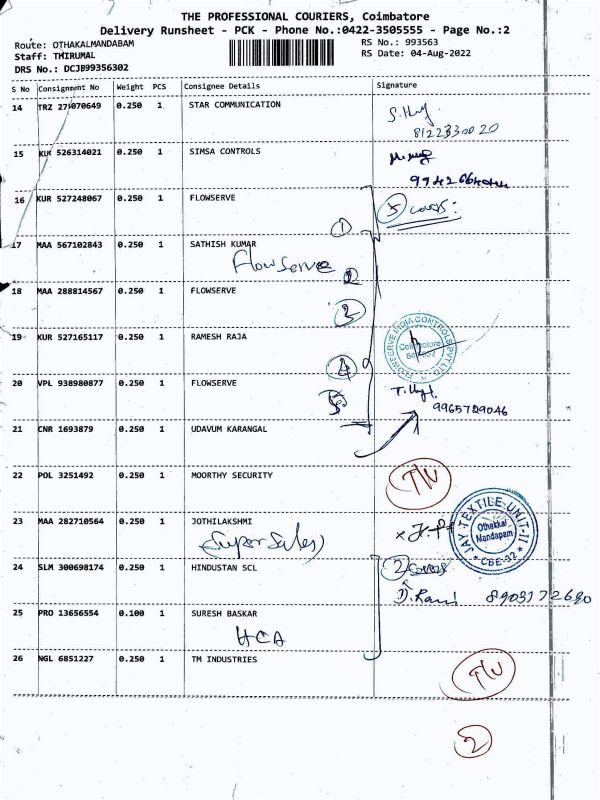 THE PROFESSIONAL COURIERS, Coimbatore
Delivery Runsheet - PCK - Phone No.:0422-3505555 - Page No.:2
Route: OTHAKALMANDABAM
Staff: THIRUMAL
DRS No.: DCJB99356302
RS No.: 993563
RS Date: 04-Aug-2022
S No Consignment No Weight PCS Consignee Details Signature
14 TRZ 271070649 0.250 1 STAR COMMUNICATION
8122330020
15 KUR 526314021 0.250 1 SIMSA CONTROLS
16 KUR 527248067 0.250 1 FLOWSERVE
5 covers:
1
17 MAA 567102843 0.250 1 SATHISH KUMAR
Flowserve 2
18 MAA 288814567 0.250 1 FLOWSERVE
3
19 KUR 527165117 0.250 1 RAMESH RAJA
FLOWSERVE INDIA CONTROLS PVT LTD
Coimbatore
4
20 VPL 938980877 0.250 1 FLOWSERVE
5
9965729046
21 CNR 1693879 0.250 1 UDAVUM KARANGAL
22 POL 3251492 0.250 1 MOORTHY SECURITY
23 MAA 282710564 0.250 1 JOTHILAKSHMI
(Super Sales)
JAY TEXTILE-UNIT-II
Othakkal
Mandapam
CBE-32
24 SLM 300698174 0.250 1 HINDUSTAN SCL
2 covers
D. Rani 8903172690
25 PRO 13656554 0.100 1 SURESH BASKAR
HCA
26 NGL 6851227 0.250 1 TM INDUSTRIES
2